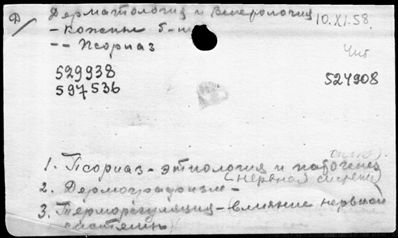 Д/ Дерматология и Венерология 10.XI.58.
- Кожные б-ни
-- Псориаз
529938 524908
597536
1. Псориаз - этиология и патогенез
(нервная система)
2. Дермографизм -
3. Терморегуляция - влияние нервной
системы